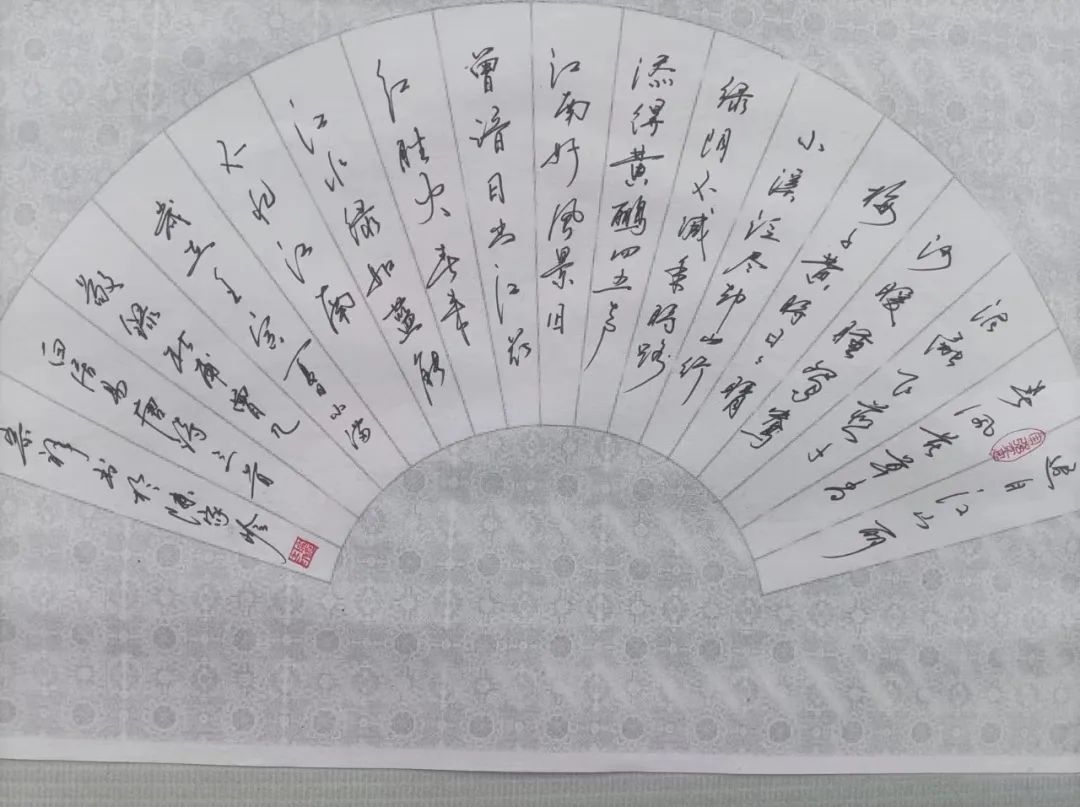 迟日江山丽
春风花草香
泥融飞燕子
沙暖睡鸳鸯
梅子黄时日日晴
小溪泛尽却山行
绿阴不减来时路
添得黄鹂四五声
江南好风景旧
曾谙日出江花
红胜火春来
江水绿如蓝能
不忆江南
岁在壬寅夏小满
敬录杜甫曾几
白居易唐诗三首
书于